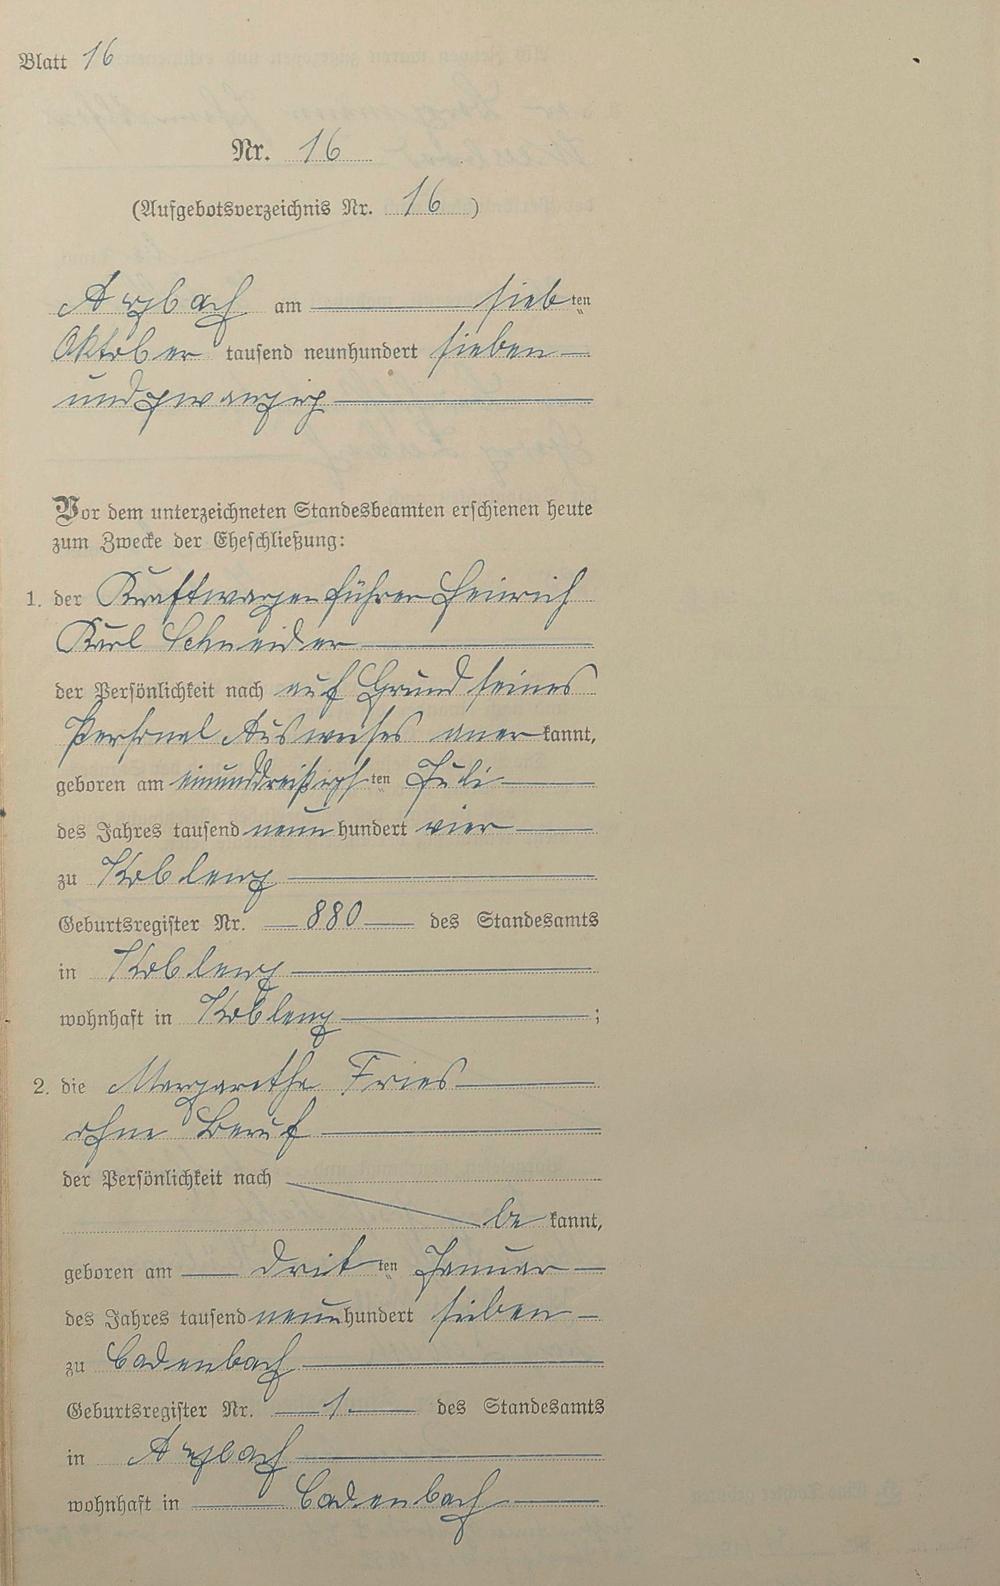 Blatt 16
Nr. 16
(Aufgebotsverzeichnis Nr. 16)
Arzbach am siebten
Oktober tausend neunhundert sieben
undzwanzig
Vor dem unterzeichneten Standesbeamten erschienen heute
zum Zwecke der Eheschließung:
1. der Kraftwagenführer Heinrich
Karl Schneider
der Persönlichkeit nach auf Grund seines
Personal Ausweises anerkannt,
geboren am einunddreißigsten Juli
des Jahres tausend neunhundert vier
zu Koblenz
Geburtsregister Nr. 880 des Standesamts
in Koblenz
wohnhaft in Koblenz;
2. die Margaretha Fries
ohne Beruf
der Persönlichkeit nach
bekannt,
geboren am dritten Januar
des Jahres tausend neunhundert sieben
zu Cadenbach
Geburtsregister Nr. 1. des Standesamts
in Arzbach
wohnhaft in Cadenbach